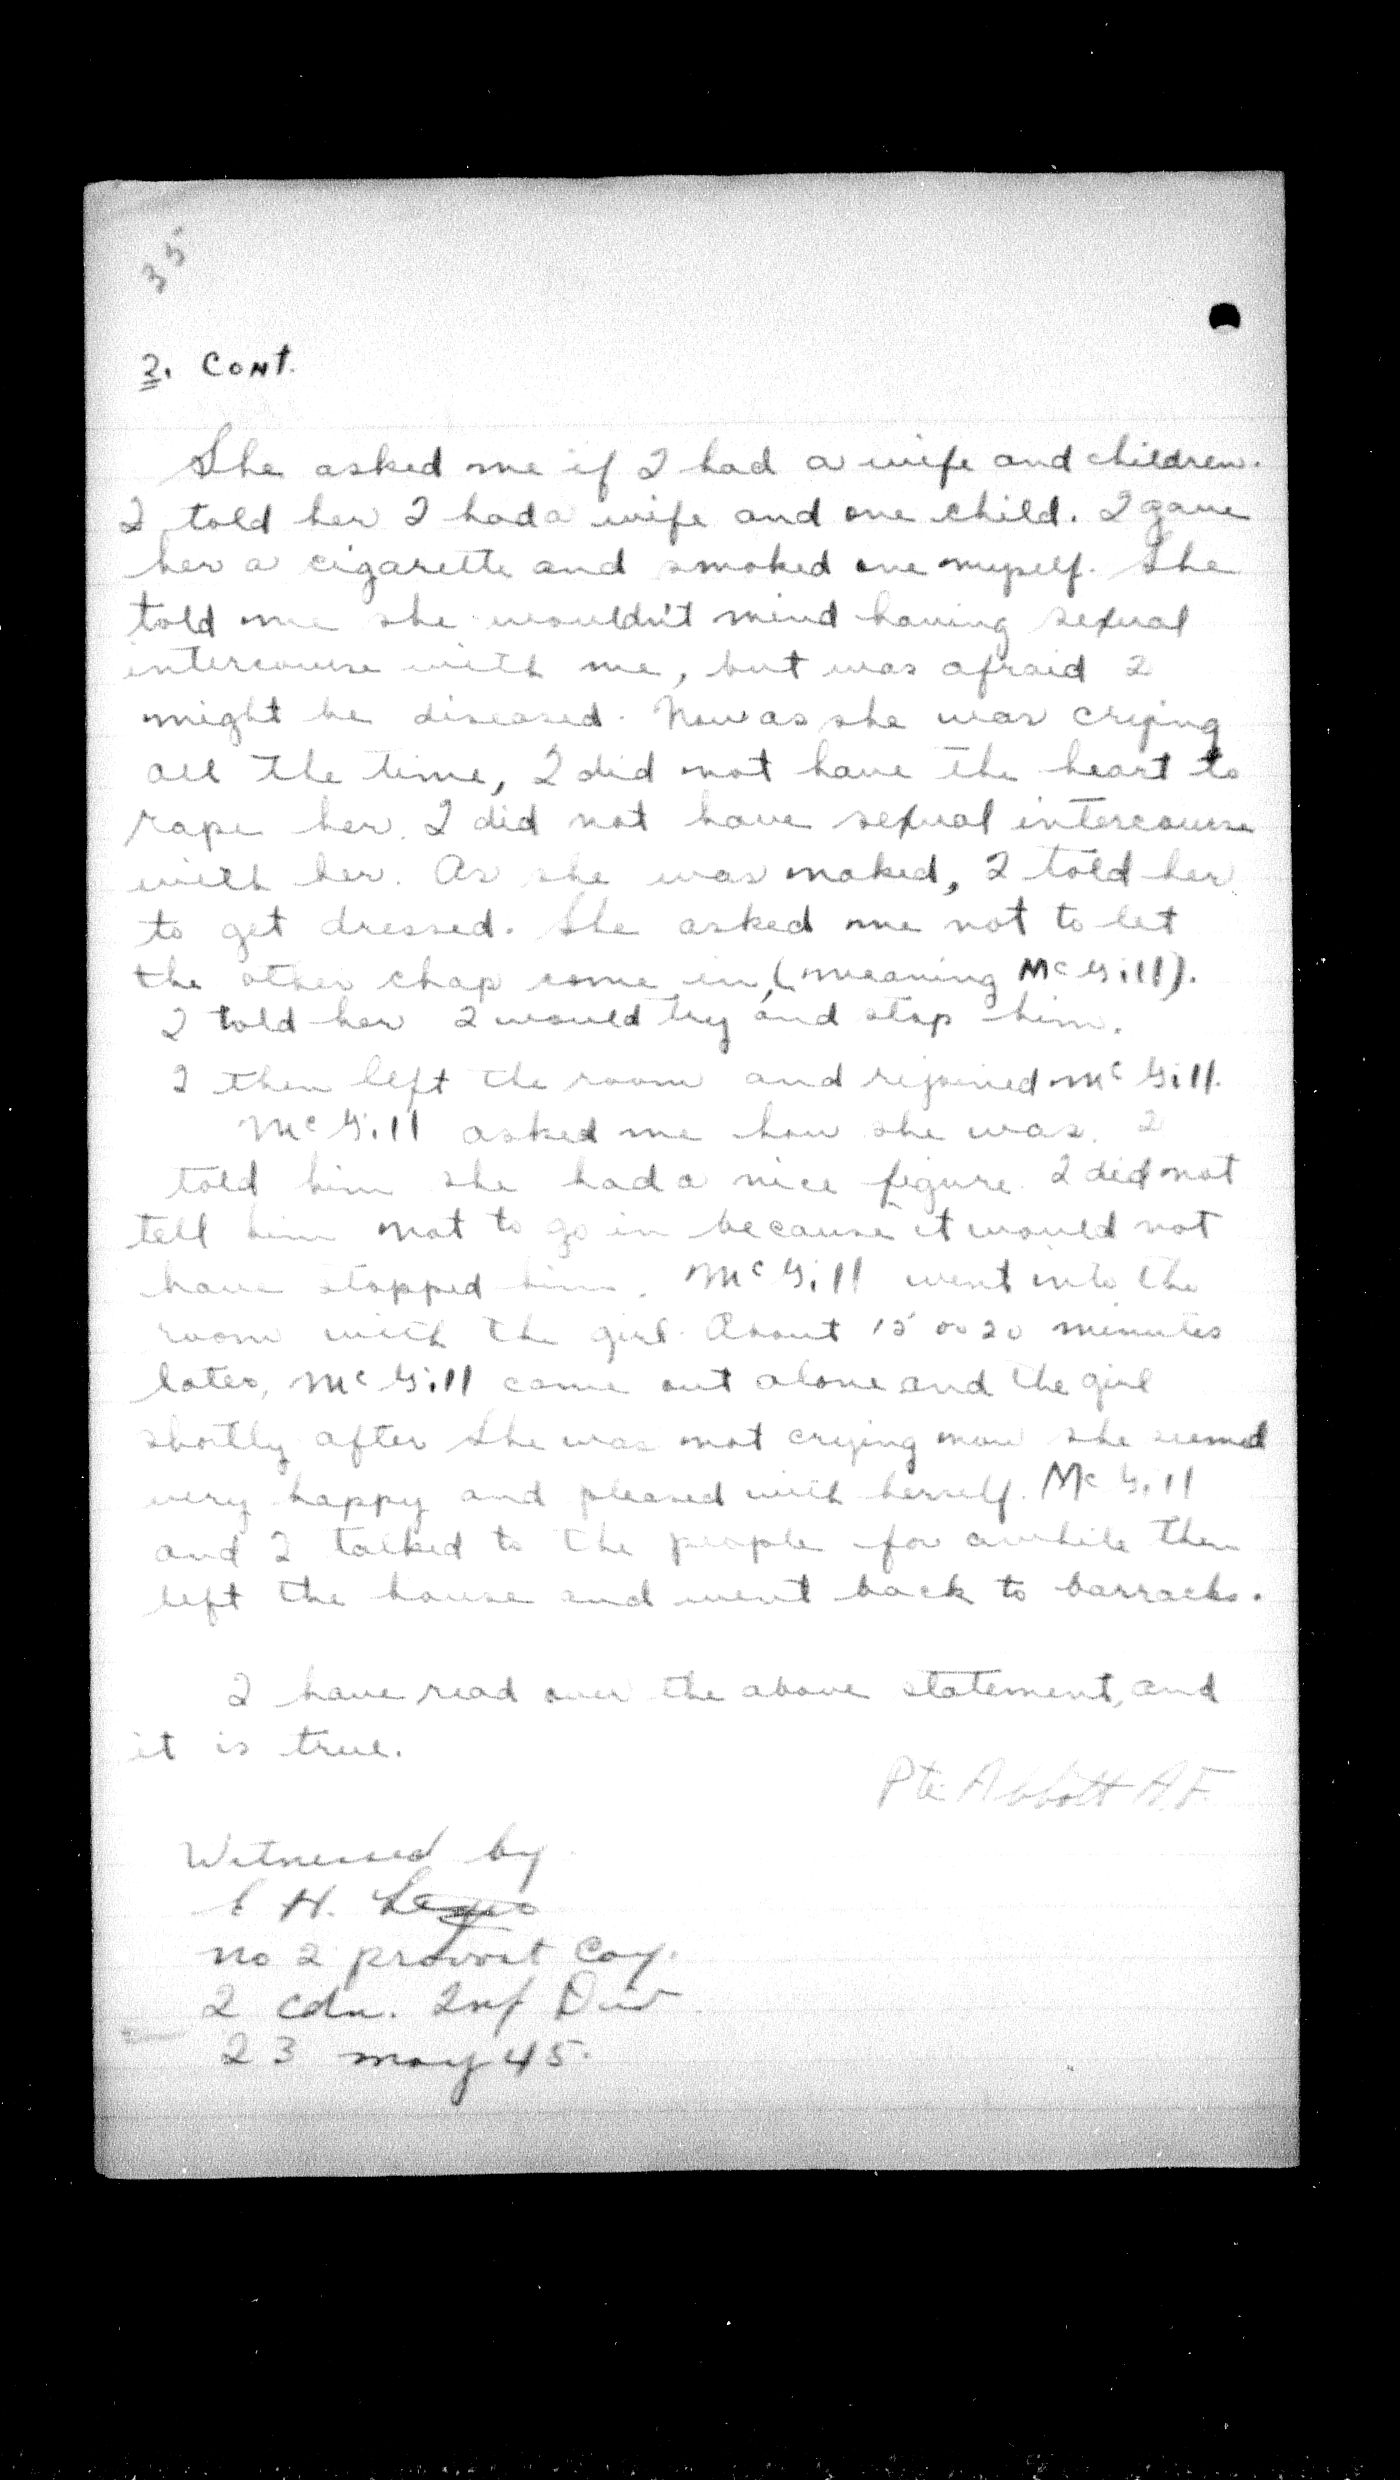 35
2. Cont.
She asked me if I had a wife and children.
I told her I had a wife and one child. I gave
her a cigarette and smoked one myself. She
told me she wouldn't mind having sexual
intercourse with me, but was afraid I
might be diseased. Now as she was crying
all the time, I did not have the heart to
rape her. I did not have sexual intercourse
with her. As she was naked, I told her
to get dressed. She asked me not to let
the other chap come in, (meaning McGill).
I told her I would try and stop him.
I then left the room and rejoined McGill.
McGill asked me how she was. I
told him she had a nice figure. I did not
tell him not to go in because it would not
have stopped him. McGill went into the
room with the girl. About 15 or 20 minutes
later, McGill came out alone and the girl
shortly after. She was not crying now she seemed
very happy and pleased with herself. McGill
and I talked to the people for awhile then
left the house and went back to barracks.
I have read over the above statement, and
it is true.
Pte Abbott A.F.
Witnessed by
H.
No 2 provost Coy.
2 Cdn. Inf Div
23 May 45.